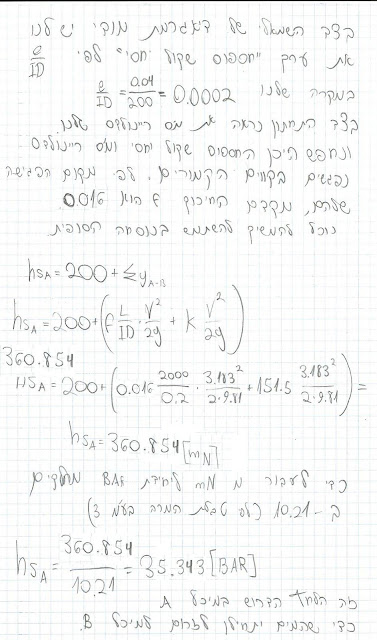 בצד השמאלי של דיאגרמת מודי יש לנו
את ערך "חספוס שקול יחסי" לפי e/ID
במקרה שלנו e/ID = 0.04/200 = 0.0002
בצד התחתון נראה את מס ריינולדס שלנו
ונחפש היכן החספוס שקול יחסי ומס ריינולדס
נפגשים בקווים הקמורים. לפי מקום הפגישה
שלהם, מקדם החיכוך f הוא 0.016
נוכל להמשיך להשתמש בנוסחה הסופית.
hsA = 200 + Σy A-B
hsA = 200 + (f L/ID · V²/2g + k V²/2g)
360.854
HSA = 200 + (0.016 2000/0.2 · 3.183²/2·9.81 + 151.5 3.183²/2·9.81) =
hsA = 360.854 [mN]
כדי לעבור מ mN ליחידת BAR מחלקים
ב - 10.21 (לפי טבלת המרה בעמ 3)
hsA = 360.854/10.21 = 35.343 [BAR]
זה הלחץ הדרוש במיכל A
כדי שהמים יתחילו לזרום למיכל B.